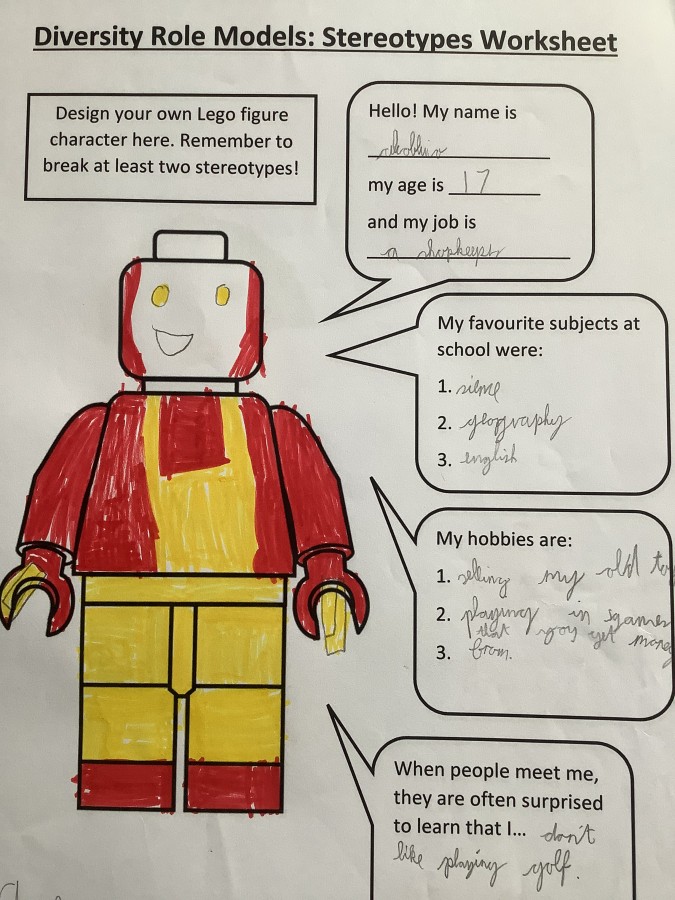 Diversity Role Models: Stereotypes Worksheet
Design your own Lego figure
character here. Remember to
break at least two stereotypes!
Hello! My name is
my age is 17
and my job is
a shopkeeper
My favourite subjects at
school were:
1.
2. geography
3. english
My hobbies are:
1. selling my old
2. playing in
that you get money
3. from.
When people meet me,
they are often surprised
to learn that I... don't
like playing golf.